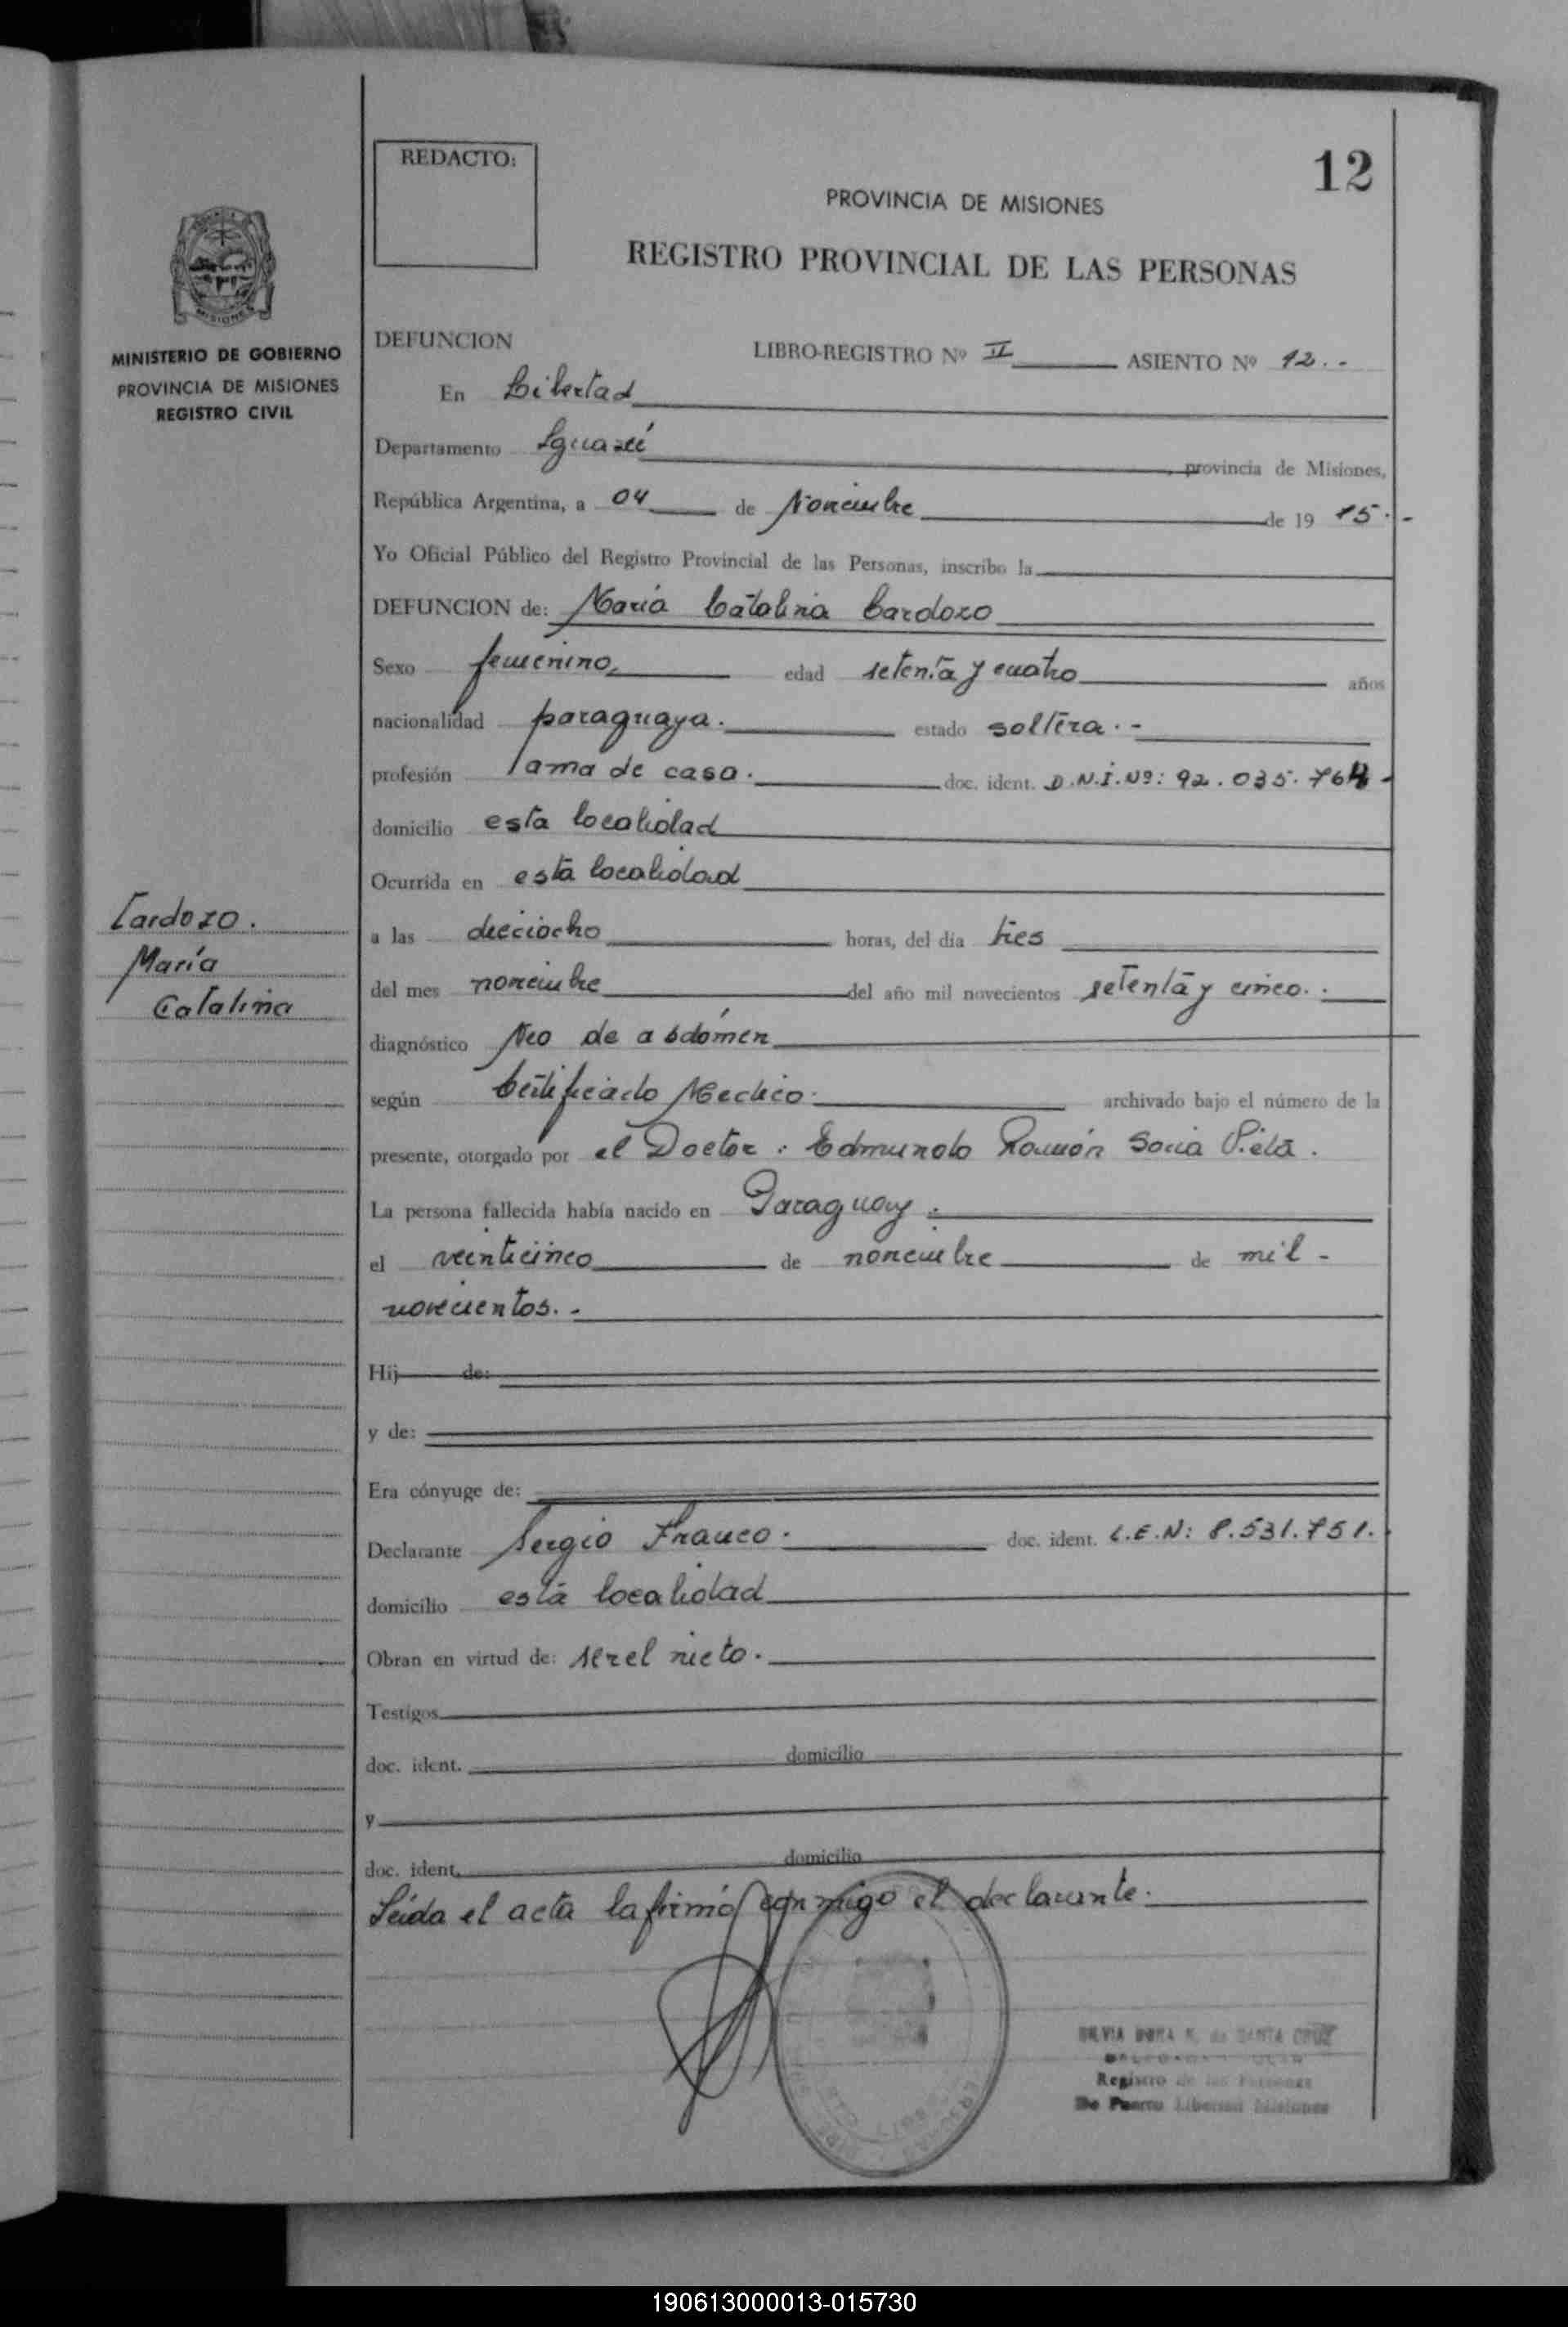 12
REDACTO:
PROVINCIA DE MISIONES
REGISTRO PROVINCIAL DE LAS PERSONAS
MISIONES
MINISTERIO DE GOBIERNO
PROVINCIA DE MISIONES
REGISTRO CIVIL
DEFUNCION LIBRO-REGISTRO Nº II ASIENTO Nº 12.-
En Libertad
Departamento Iguazú, provincia de Misiones,
República Argentina, a 04 de Noviembre de 19 75.-
Yo Oficial Público del Registro Provincial de las Personas, inscribo la
DEFUNCION de: María Catalina Cardozo
Sexo femenino, edad setenta y cuatro años
nacionalidad paraguaya. estado soltera.-
profesión ama de casa. doc. ident. D.N.I.Nº: 92.035.764-
domicilio esta localidad
Ocurrida en esta localidad
Cardozo.
María
Catalina
a las dieciocho horas, del día tres
del mes noviembre del año mil novecientos setenta y cinco.
diagnóstico Neo de abdómen
según Certificado Medico. archivado bajo el número de la
presente, otorgado por el Doctor: Edmundo Ramón Soria
La persona fallecida había nacido en Paraguay.
el veinticinco de noviembre de mil -
novecientos.-
Hij de:
y de:
Era cónyuge de:
Declarante Sergio Franco. doc. ident. L.E.N: 8.531.751.
domicilio esta localidad
Obran en virtud de: ser el nieto.
Testigos
doc. ident. domicilio
y
doc. ident. domicilio
Leida el acta la firmó conmigo el declarante.
SILVIA DORA de SANTA CRUZ
Registro de las Personas
De Puerto Libertad Misiones
190613000013-015730